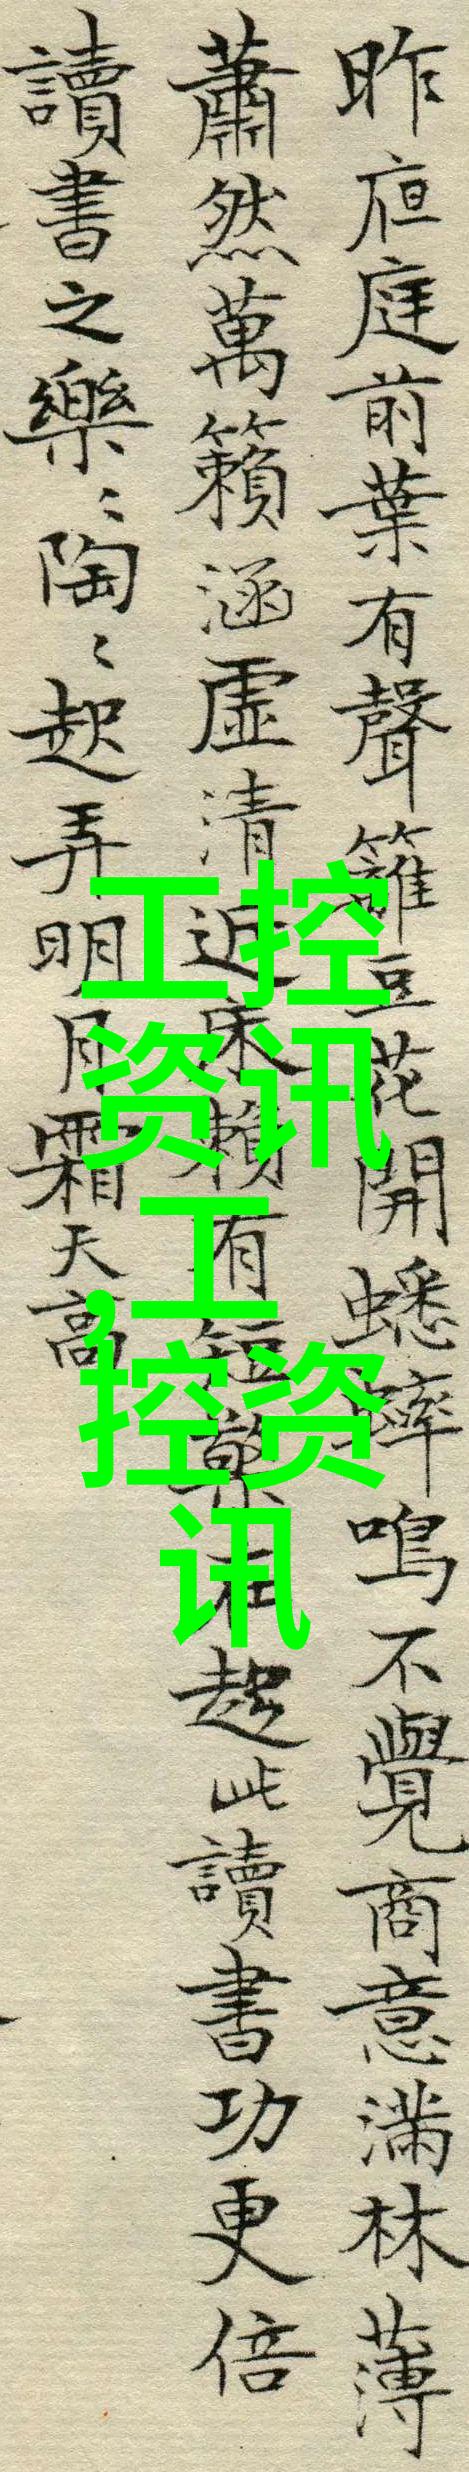 昨亱庭前葉有聲籬豆花開蟋蟀鳴不覺商意滿林薄
蕭然萬籟涵虛清近床賴有短檠在起此讀書功更倍
讀書之樂〻陶〻起弄明月霜天高
工控
资讯
,工
控资
讯